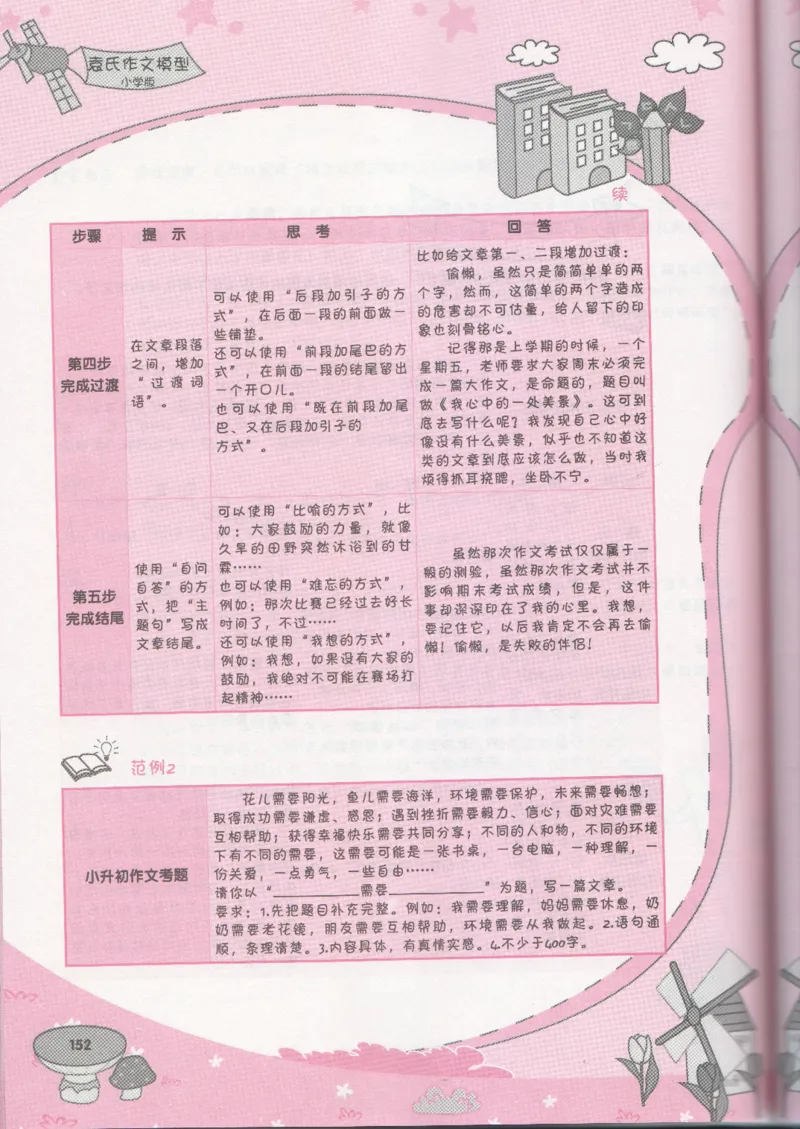 袁氏作文模型
小学版
续
步骤 提 示 思 考 回 答
第四步
完成过渡
在文章段落
之间，增加
“过渡词
语”。
可以使用“后段加引子的方
式”，在后面一段的前面做一
些铺垫。
还可以使用“前段加尾巴的方
式”，在前面一段的结尾留出
一个开口儿。
也可以使用“既在前段加尾
巴、又在后段加引子的
方式”。
比如给文章第一、二段增加过渡：
偷懒，虽然只是简简单单的两
个字，然而，这简单的两个字造成
的危害却不可估量，给人留下的印
象也刻骨铭心。
记得那是上学期的时候，一个
星期五，老师要求大家周末必须完
成一篇大作文，是命题的，题目叫
做《我心中的一处美景》。这可到
底去写什么呢？我发现自己心中好
像没有什么美景，似乎也不知道这
类的文章到底应该怎么做，当时我
烦得抓耳挠腮，坐卧不宁。
第五步
完成结尾
使用“自问
自答”的方
式，把“主
题句”写成
文章结尾。
可以使用“比喻的方式”，比
如：大家鼓励的力量，就像
久旱的田野突然沐浴到的甘
霖……
也可以使用“难忘的方式”，
例如：那次比赛已经过去好长
时间了，不过……
还可以使用“我想的方式”，
例如：我想，如果没有大家的
鼓励，我绝对不可能在赛场打
起精神……
虽然那次作文考试仅仅属于一
般的测验，虽然那次作文考试并不
影响期末考试成绩，但是，这件
事却深深印在了我的心里。我想，
要记住它，以后我肯定不会再去偷
懒！偷懒，是失败的伴侣！
范例2
小升初作文考题
花儿需要阳光，鱼儿需要海洋，环境需要保护，未来需要畅想；
取得成功需要谦虚、感恩；遇到挫折需要毅力、信心；面对灾难需要
互相帮助；获得幸福快乐需要共同分享；不同的人和物，不同的环境
下有不同的需要，这需要可能是一张书桌，一台电脑，一种理解，一
份关爱，一点勇气，一些自由……
请你以“__________需要__________”为题，写一篇文章。
要求：1.先把题目补充完整。例如：我需要理解，妈妈需要休息，奶
奶需要老花镜，朋友需要互相帮助，环境需要从我做起。2.语句通
顺，条理清楚。3.内容具体，有真情实感。4.不少于400字。
152